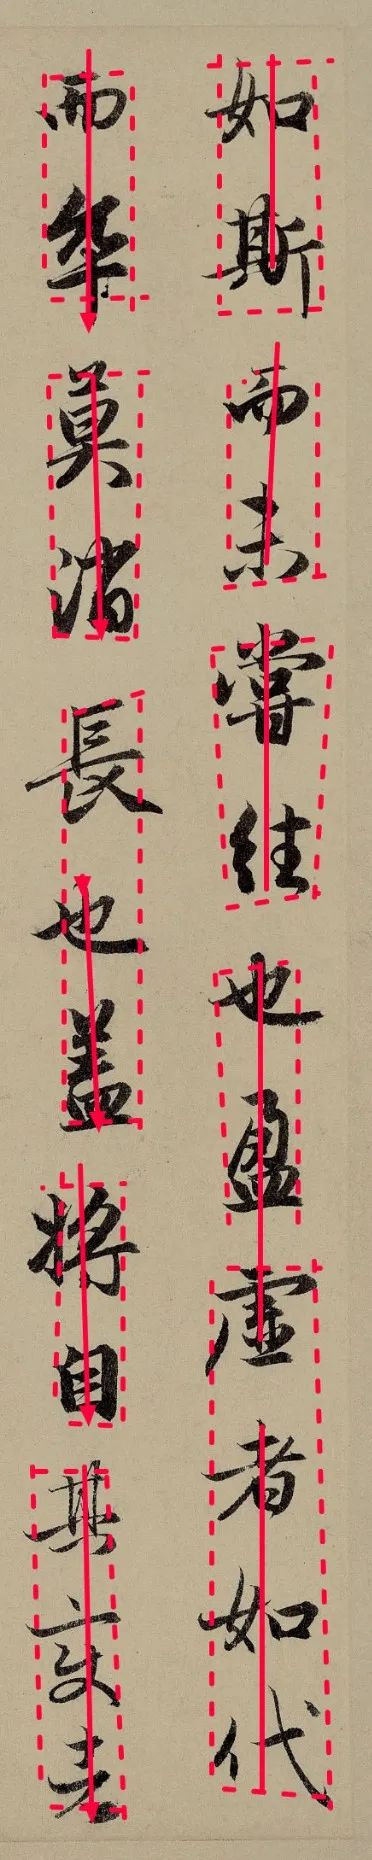 如斯而未嘗往也盈虛者如代
而卒莫消長也盖將自其变者